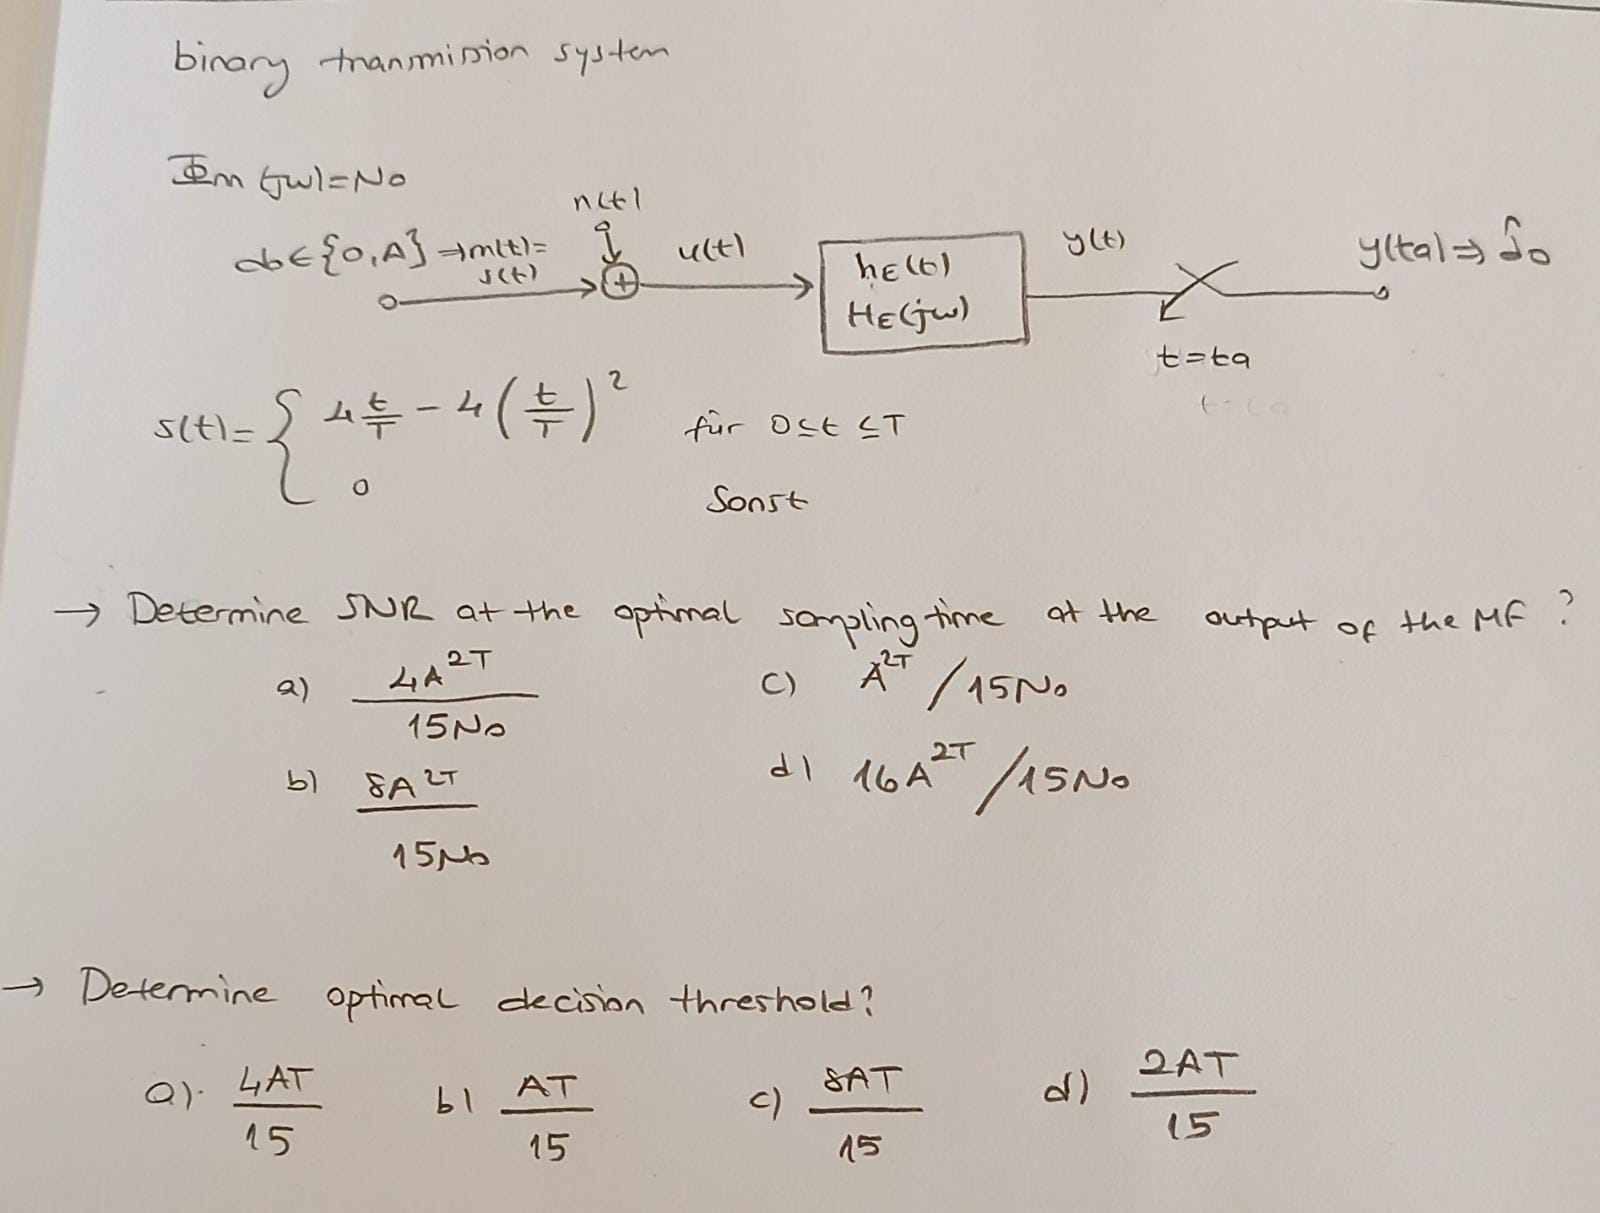 binary transmission system
Φn (jw) = No
n(t)
do ∈ {0,A} → m(t)=
s(t)
u(t)
hE(t)
HE(jw)
y(t)
y(ta) ⇒ d̂o
t=ta
s(t) = { 4 t/T - 4 (t/T)² für 0 ≤ t ≤ T
0 Sonst
→ Determine SNR at the optimal sampling time at the output of the MF ?
a) 4A^2T / 15No
c) A^2T / 15No
b) 8A^2T / 15No
d) 16A^2T / 15No
→ Determine optimal decision threshold?
a) 4AT/15 b) AT/15 c) 8AT/15 d) 2AT/15